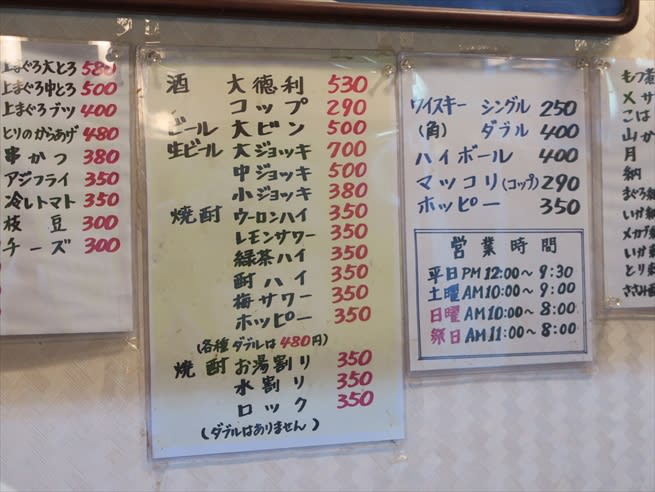 上まぐろ大とろ 580
上まぐろ中とろ 500
上まぐろブツ 400
とりのからあげ 480
串かつ 380
アジフライ 350
冷しトマト 350
枝豆 300
チーズ 300
酒 大徳利 530
コップ 290
ビール 大ビン 500
生ビール 大ジョッキ 700
中ジョッキ 500
小ジョッキ 380
焼酎 ウーロンハイ 350
レモンサワー 350
緑茶ハイ 350
酎ハイ 350
梅サワー 350
ホッピー 350
(各種ダブルは480円)
焼酎 お湯割り 350
水割り 350
ロック 350
(ダブルはありません)
ワイスキー シングル 250
(角) ダブル 400
ハイボール 400
マッコリ(コップ) 290
ホッピー 350
営業時間
平日 PM 12:00~9:30
土曜 AM 10:00~9:00
日曜 AM 10:00~8:00
祭日 AM 11:00~8:00
もつ煮
メサ
こは
山か
月
納
まぐろ納
いか納
メカブ
いか
とり
ささみ